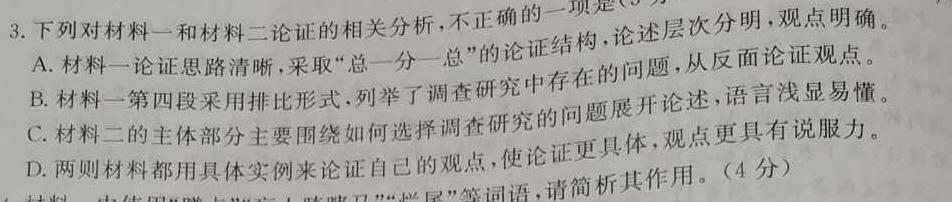 3. 下列对材料一和材料二论证的相关分析,不正确的一项是(3
A. 材料一论证思路清晰,采取“总—分—总”的论证结构,论述层次分明,观点明确。
B. 材料一第四段采用排比形式,列举了调查研究中存在的问题,从反面论证观点。
C. 材料二的主体部分主要围绕如何选择调查研究的问题展开论述,语言浅显易懂。
D. 两则材料都用具体实例来论证自己的观点,使论证更具体,观点更具有说服力。
等词语,请简析其作用。(4 分)